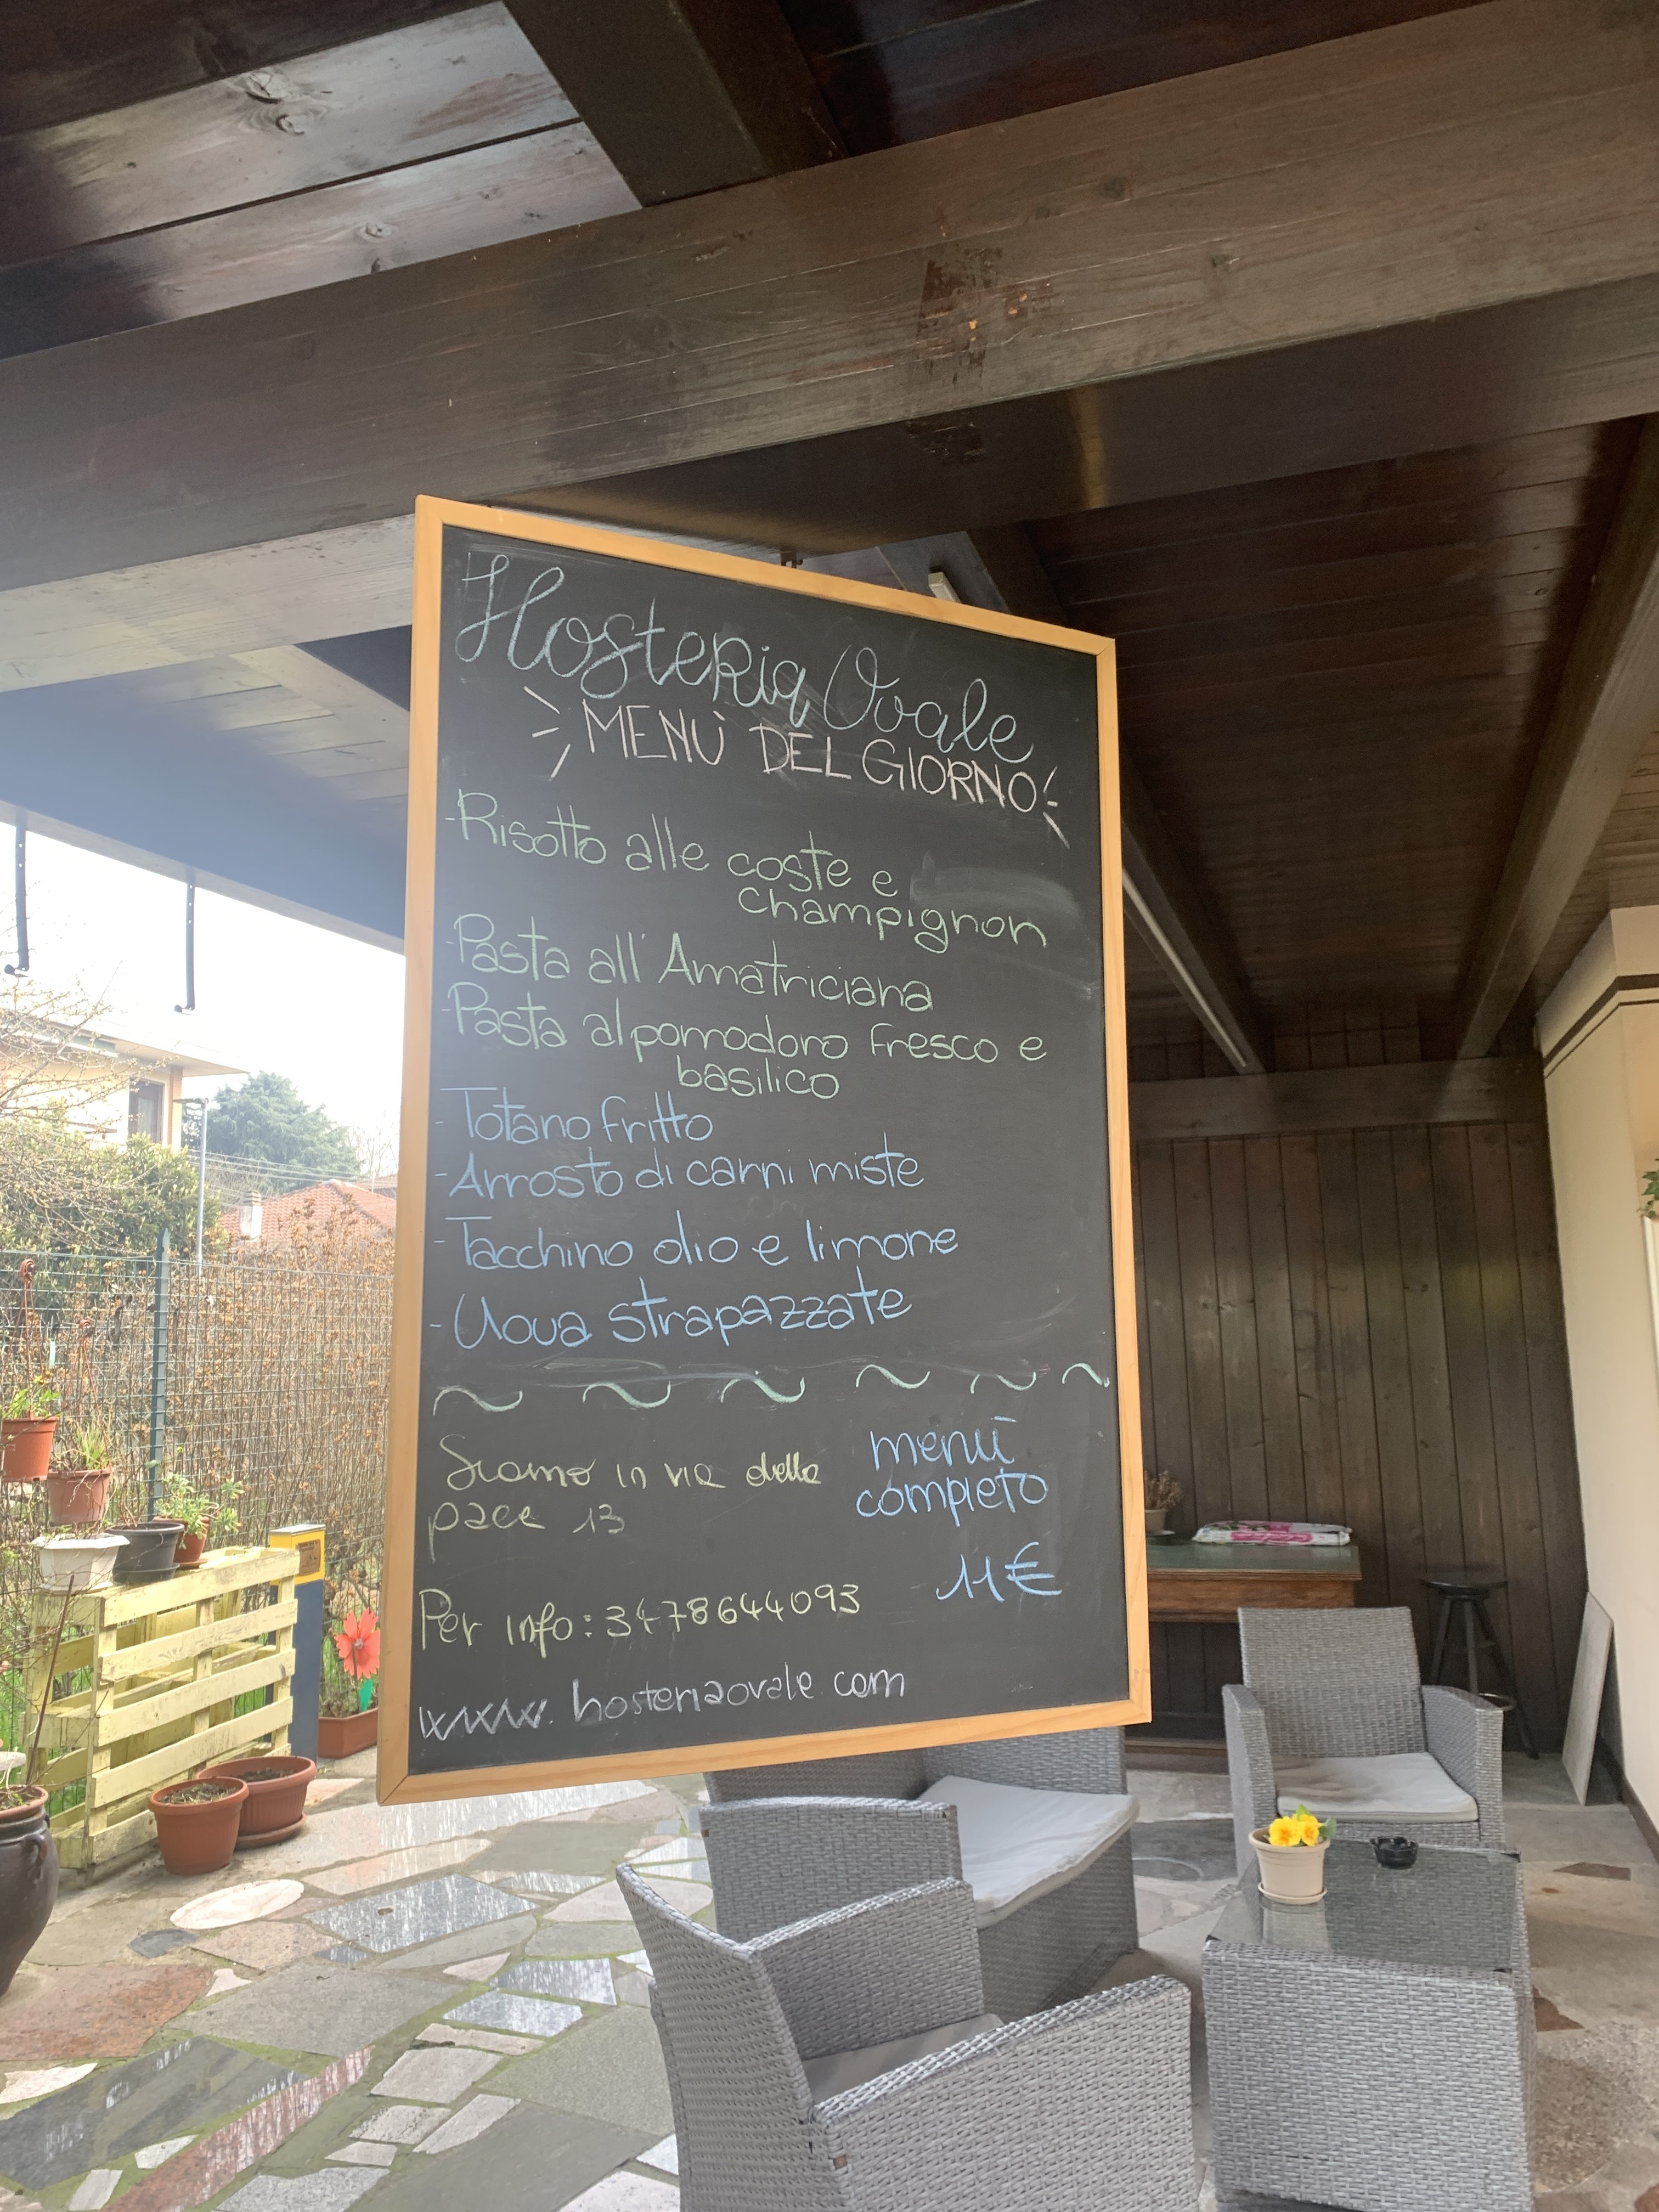 Hosteria Ovale
MENÙ DEL GIORNO
-Risotto alle coste e
champignon
-Pasta all'Amatriciana
-Pasta al pomodoro fresco e
basilico
-Totano fritto
-Arrosto di carni miste
-Tacchino olio e limone
-Uova strapazzate
~ ~ ~ ~ ~ ~
Siamo in via della
pace 13
menù
completo
11€
Per info: 3478644093
www.hosteriaovale com